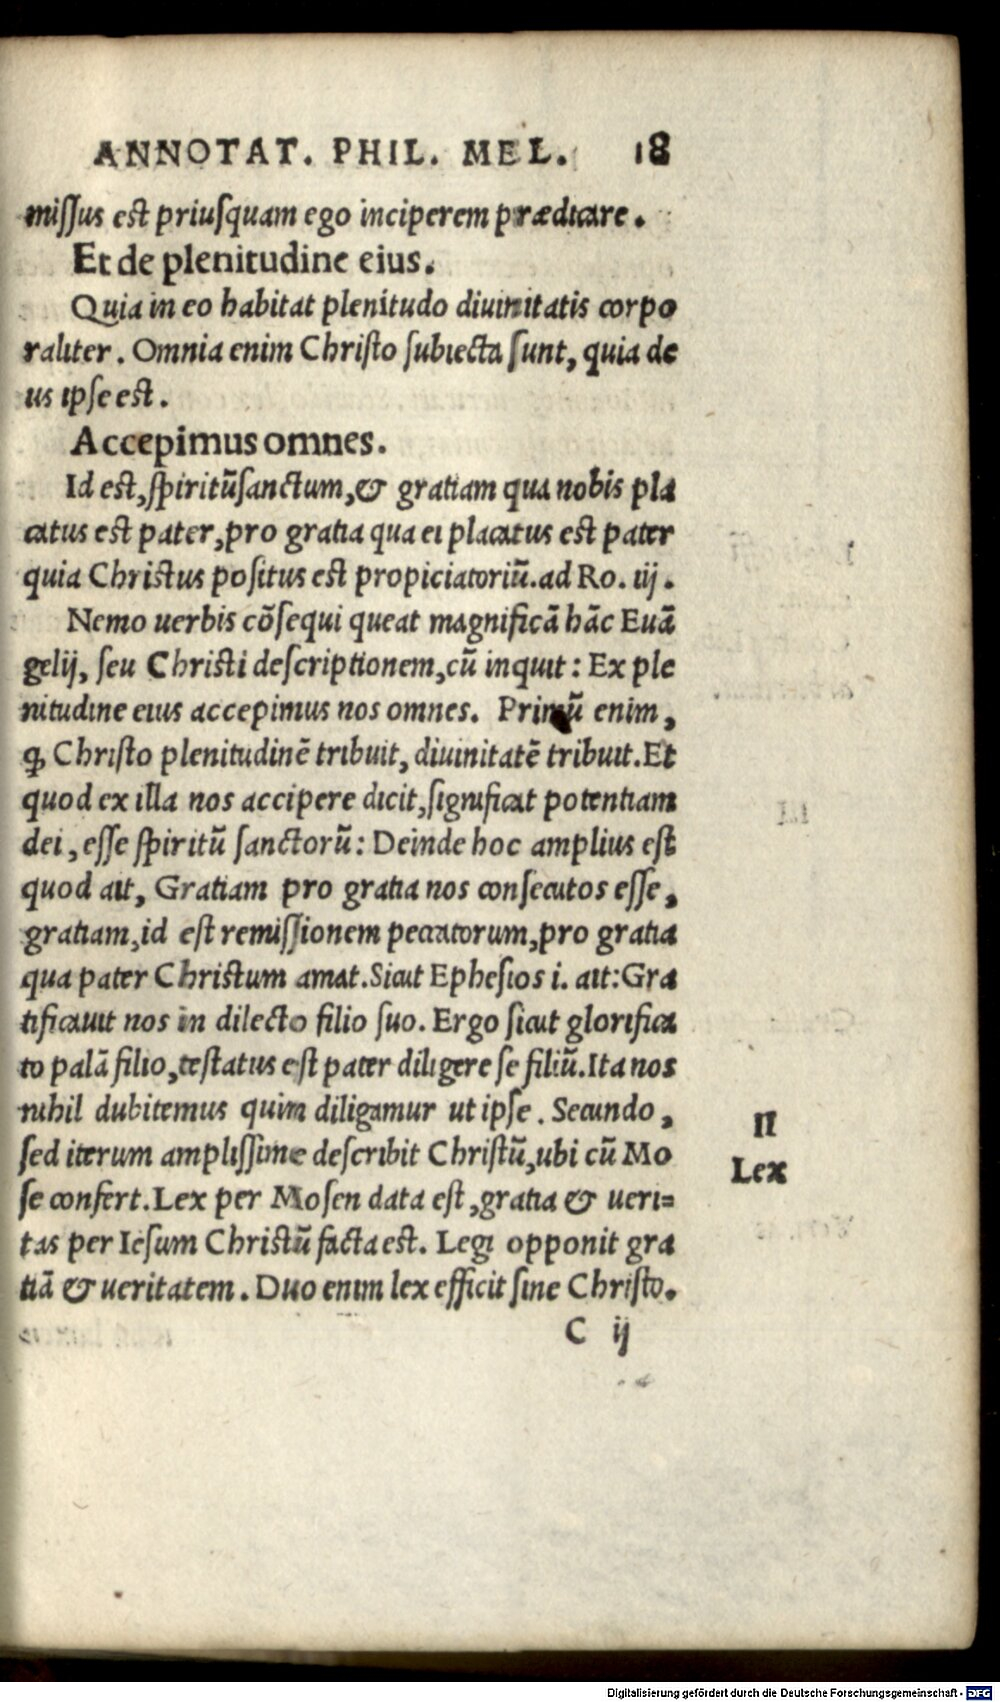 ANNOTAT. PHIL. MEL. 18
missus est priusquam ego inciperem prædicare.
Et de plenitudine eius.
Quia in eo habitat plenitudo diuinitatis corpo
raliter. Omnia enim Christo subiecta sunt, quia de
us ipse est.
Accepimus omnes.
Id est, spiritũsanctum, & gratiam qua nobis pla
catus est pater, pro gratia qua ei placatus est pater
quia Christus positus est propiciatoriũ. ad Ro. iij.
Nemo uerbis cõsequi queat magnificã hãc Euã
gelij, seu Christi descriptionem, cũ inquit: Ex ple
nitudine eius accepimus nos omnes. Primũ enim,
ꝙ Christo plenitudinẽ tribuit, diuinitatẽ tribuit. Et
quod ex illa nos accipere dicit, significat potentiam
dei, esse spiritũ sanctorũ: Deinde hoc amplius est
quod ait, Gratiam pro gratia nos consecutos esse,
gratiam, id est remissionem peccatorum, pro gratia
qua pater Christum amat. Sicut Ephesios i. ait: Gra
tificauit nos in dilecto filio suo. Ergo sicut glorifica
to palã filio, testatus est pater diligere se filiũ. Ita nos
nihil dubitemus quin diligamur ut ipse. Secundo,
sed iterum amplissime describit Christũ, ubi cũ Mo
se confert. Lex per Mosen data est, gratia & ueri=
tas per Iesum Christũ facta est. Legi opponit gra
tiã & ueritatem. Duo enim lex efficit sine Christo.
II
Lex
C ij
Digitalisierung gefördert durch die Deutsche Forschungsgemeinschaft - DFG